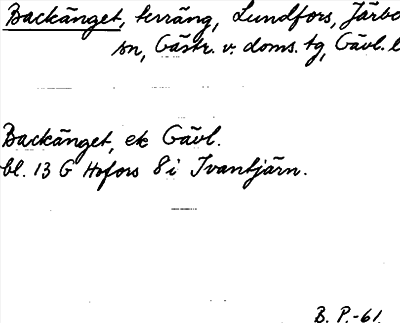 Backänget, terräng, Lundfors, Järbo
sn, Gästr. v. doms. tg, Gävl. l
Backänget, ek Gävl.
bl. 13 G Hofors 8 i Ivantjärn.
B. P. -61.